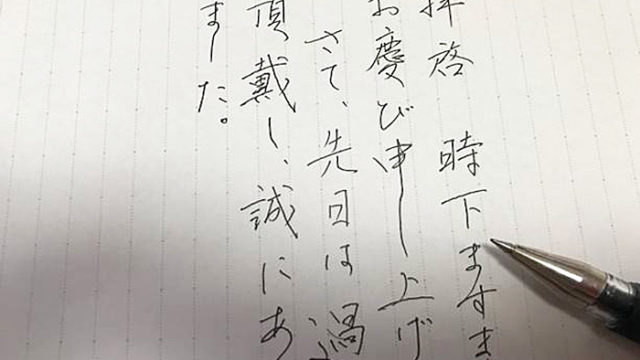 拝啓 時下ますま
お慶び申し上げ
さて、先日は過
頂戴し、誠にあ
ました。